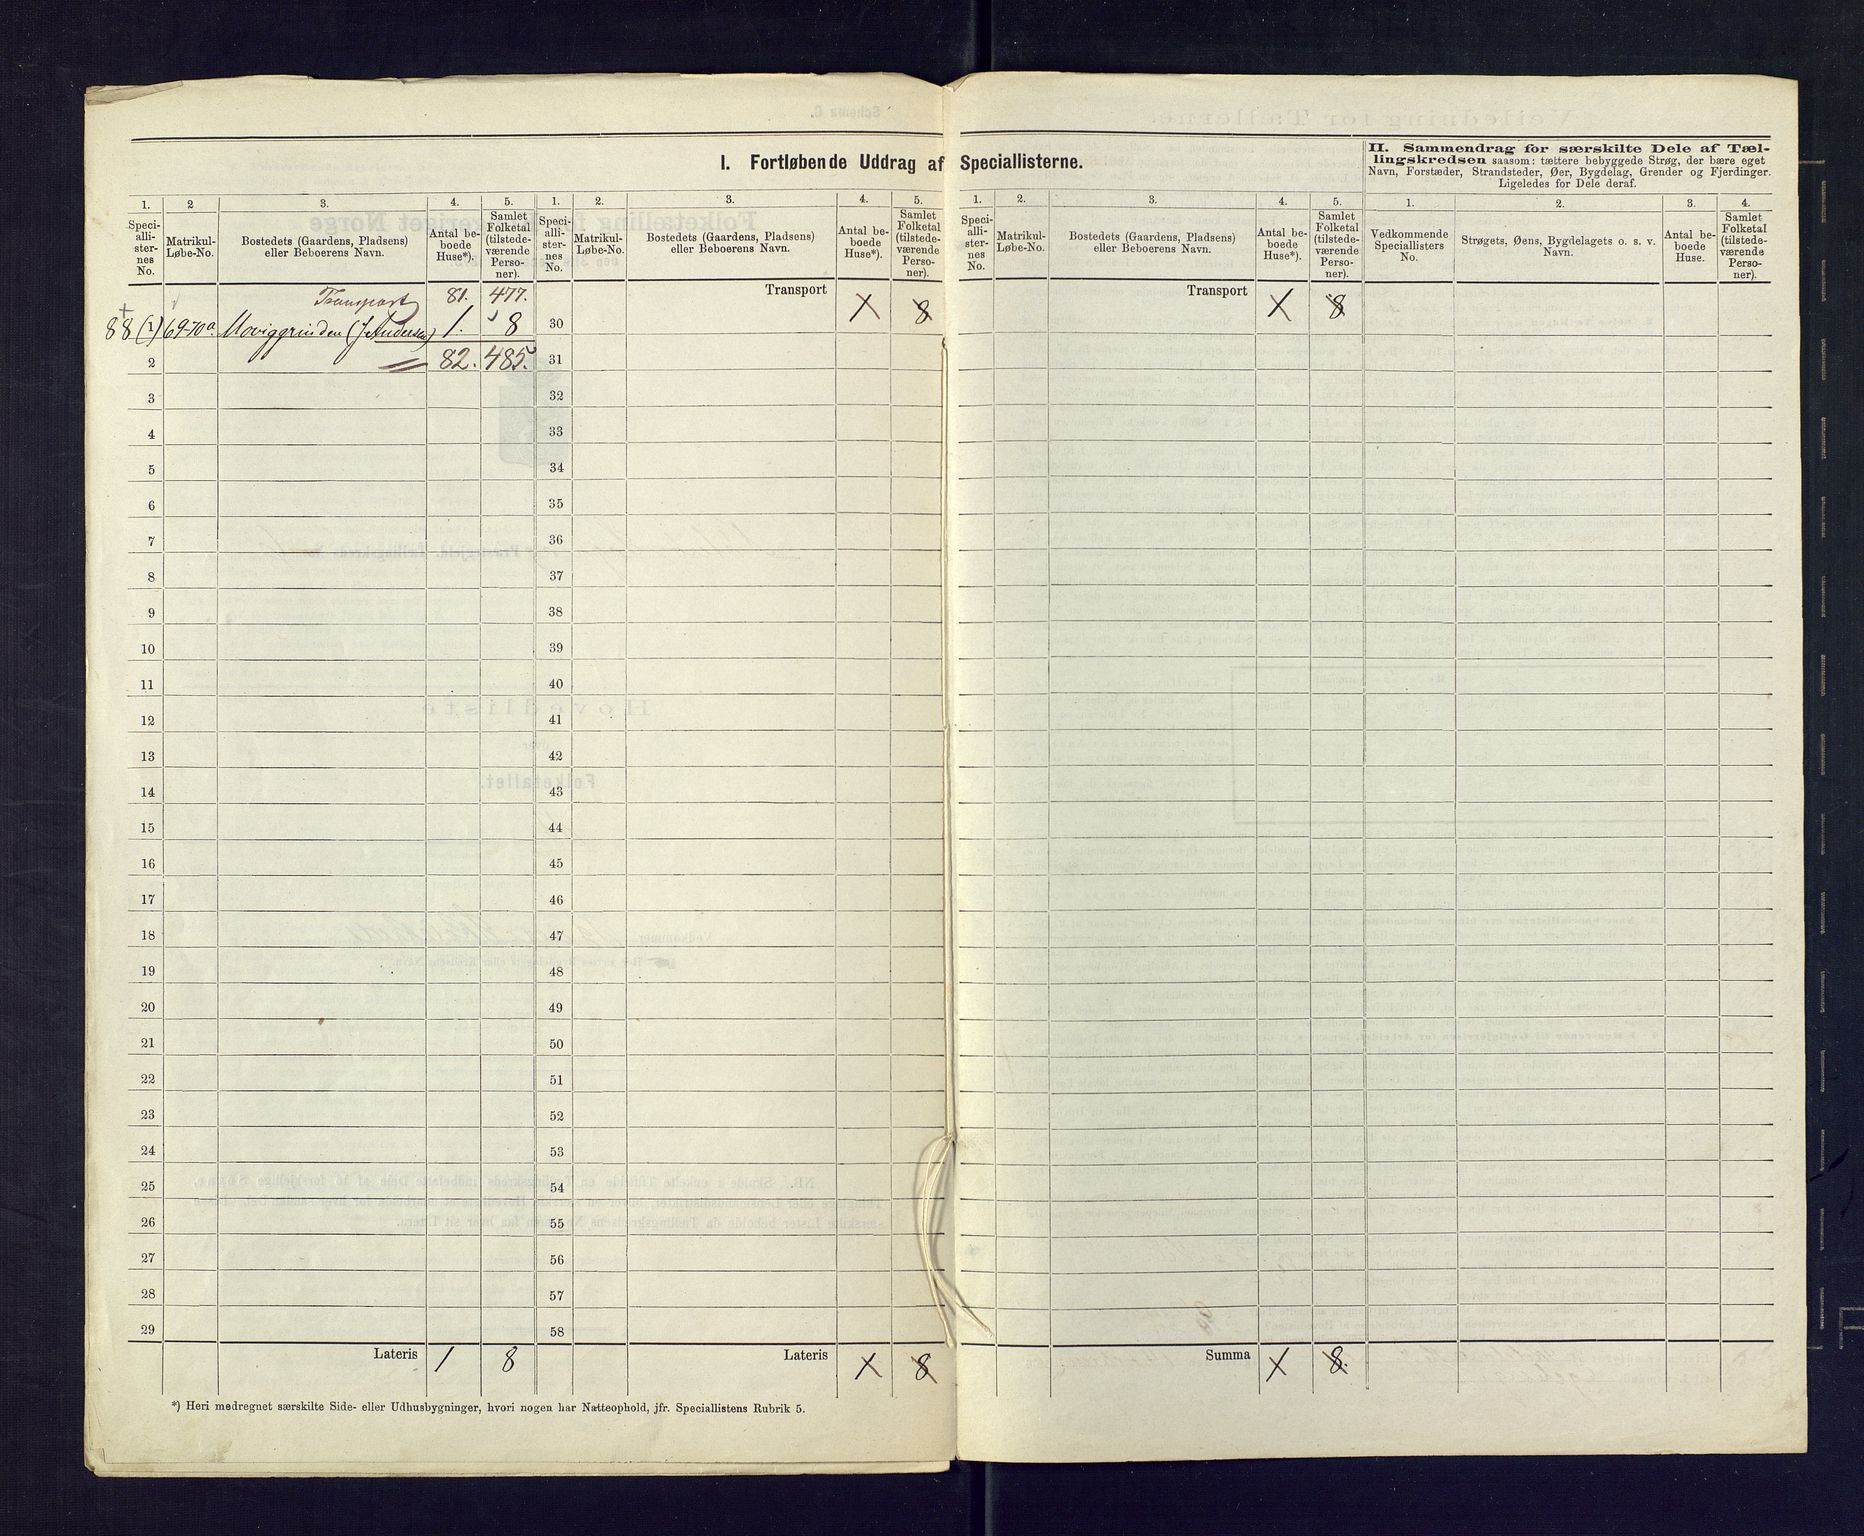 I. Fortløbende Uddrag af Speciallisterne.
II. Sammendrag for særskilte Dele af Tæl-
lingskredsen saasom: tættere bebyggede Strøg, der bære eget
Navn, Forstæder, Strandsteder, Øer, Bygdelag, Grender og Fjerdinger.
Ligeledes for Dele deraf.
1. 2 3. 4. 5. 1. 2. 3. 4. 5. 1. 2. 3. 4. 5. 1. 2. 3. 4.
Speci-
alli-
ster-
nes
No.
Matrikul-
Løbe-No.
Bostedets (Gaardens, Pladsens)
eller Beboerens Navn.
Antal be-
boede
Huse*).
Samlet
Folketal
(tilstede-
værende
Perso-
ner).
Speci-
alli-
ster-
nes
No.
Matrikul-
Løbe-No.
Bostedets (Gaardens, Pladsens)
eller Beboerens Navn.
Antal be-
boede
Huse*).
Samlet
Folketal
(tilstede-
værende
Perso-
ner).
Speci-
alli-
ster-
nes
No.
Matrikul-
Løbe-No.
Bostedets (Gaardens, Pladsens)
eller Beboerens Navn.
Antal be-
boede
Huse*).
Samlet
Folketal
(tilstede-
værende
Perso-
ner).
Vedkommende
Speciallisters
No.
Strøgets, Øens, Bygdelagets o. s. v.
Navn.
Antal be-
boede
Huse.
Samlet
Folketal
(tilstede-
værende
Perso-
ner).
Transport 81. 477. Transport 8 Transport 8
88 (1) 69-70a. (J. Andersen) 1. 8 30
2 82. 485. 31
3 32
4 33
5 34
6 35
7 36
8 37
9 38
10 39
11 40
12 41
13 42
14 43
15 44
16 45
17 46
18 47
19 48
20 49
21 50
22 51
23 52
24 53
25 54
26 55
27 56
28 57
29 58
Lateris 1 8 Lateris 8 Summa 8.
*) Heri medregnet særskilte Side- eller Udhusbygninger, hvori nogen har Natteophold, jfr. Speciallistens Rubrik 5.